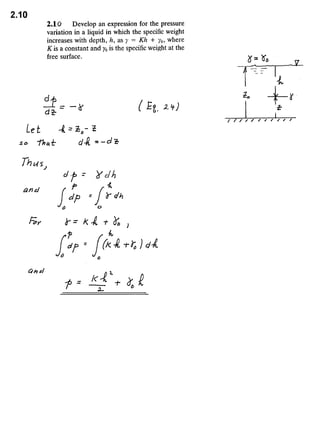 2.10
2.10 Develop an expression for the pressure
variation in a liquid in which the specific weight
increases with depth, h, as γ = Kh + γ₀, where
K is a constant and γ₀ is the specific weight at the
free surface.
γ = γ₀
h
z₀
γ
z
dp/dz = -γ (Eq. 2.4)
Let h = z₀ - z
so that dh = -dz
Thus,
dp = γ dh
and ∫₀ᵖ dp = ∫₀ʰ γ dh
For γ = K h + γ₀ ,
∫₀ᵖ dp = ∫₀ʰ (K h + γ₀) dh
and
p = K h²/2 + γ₀ h